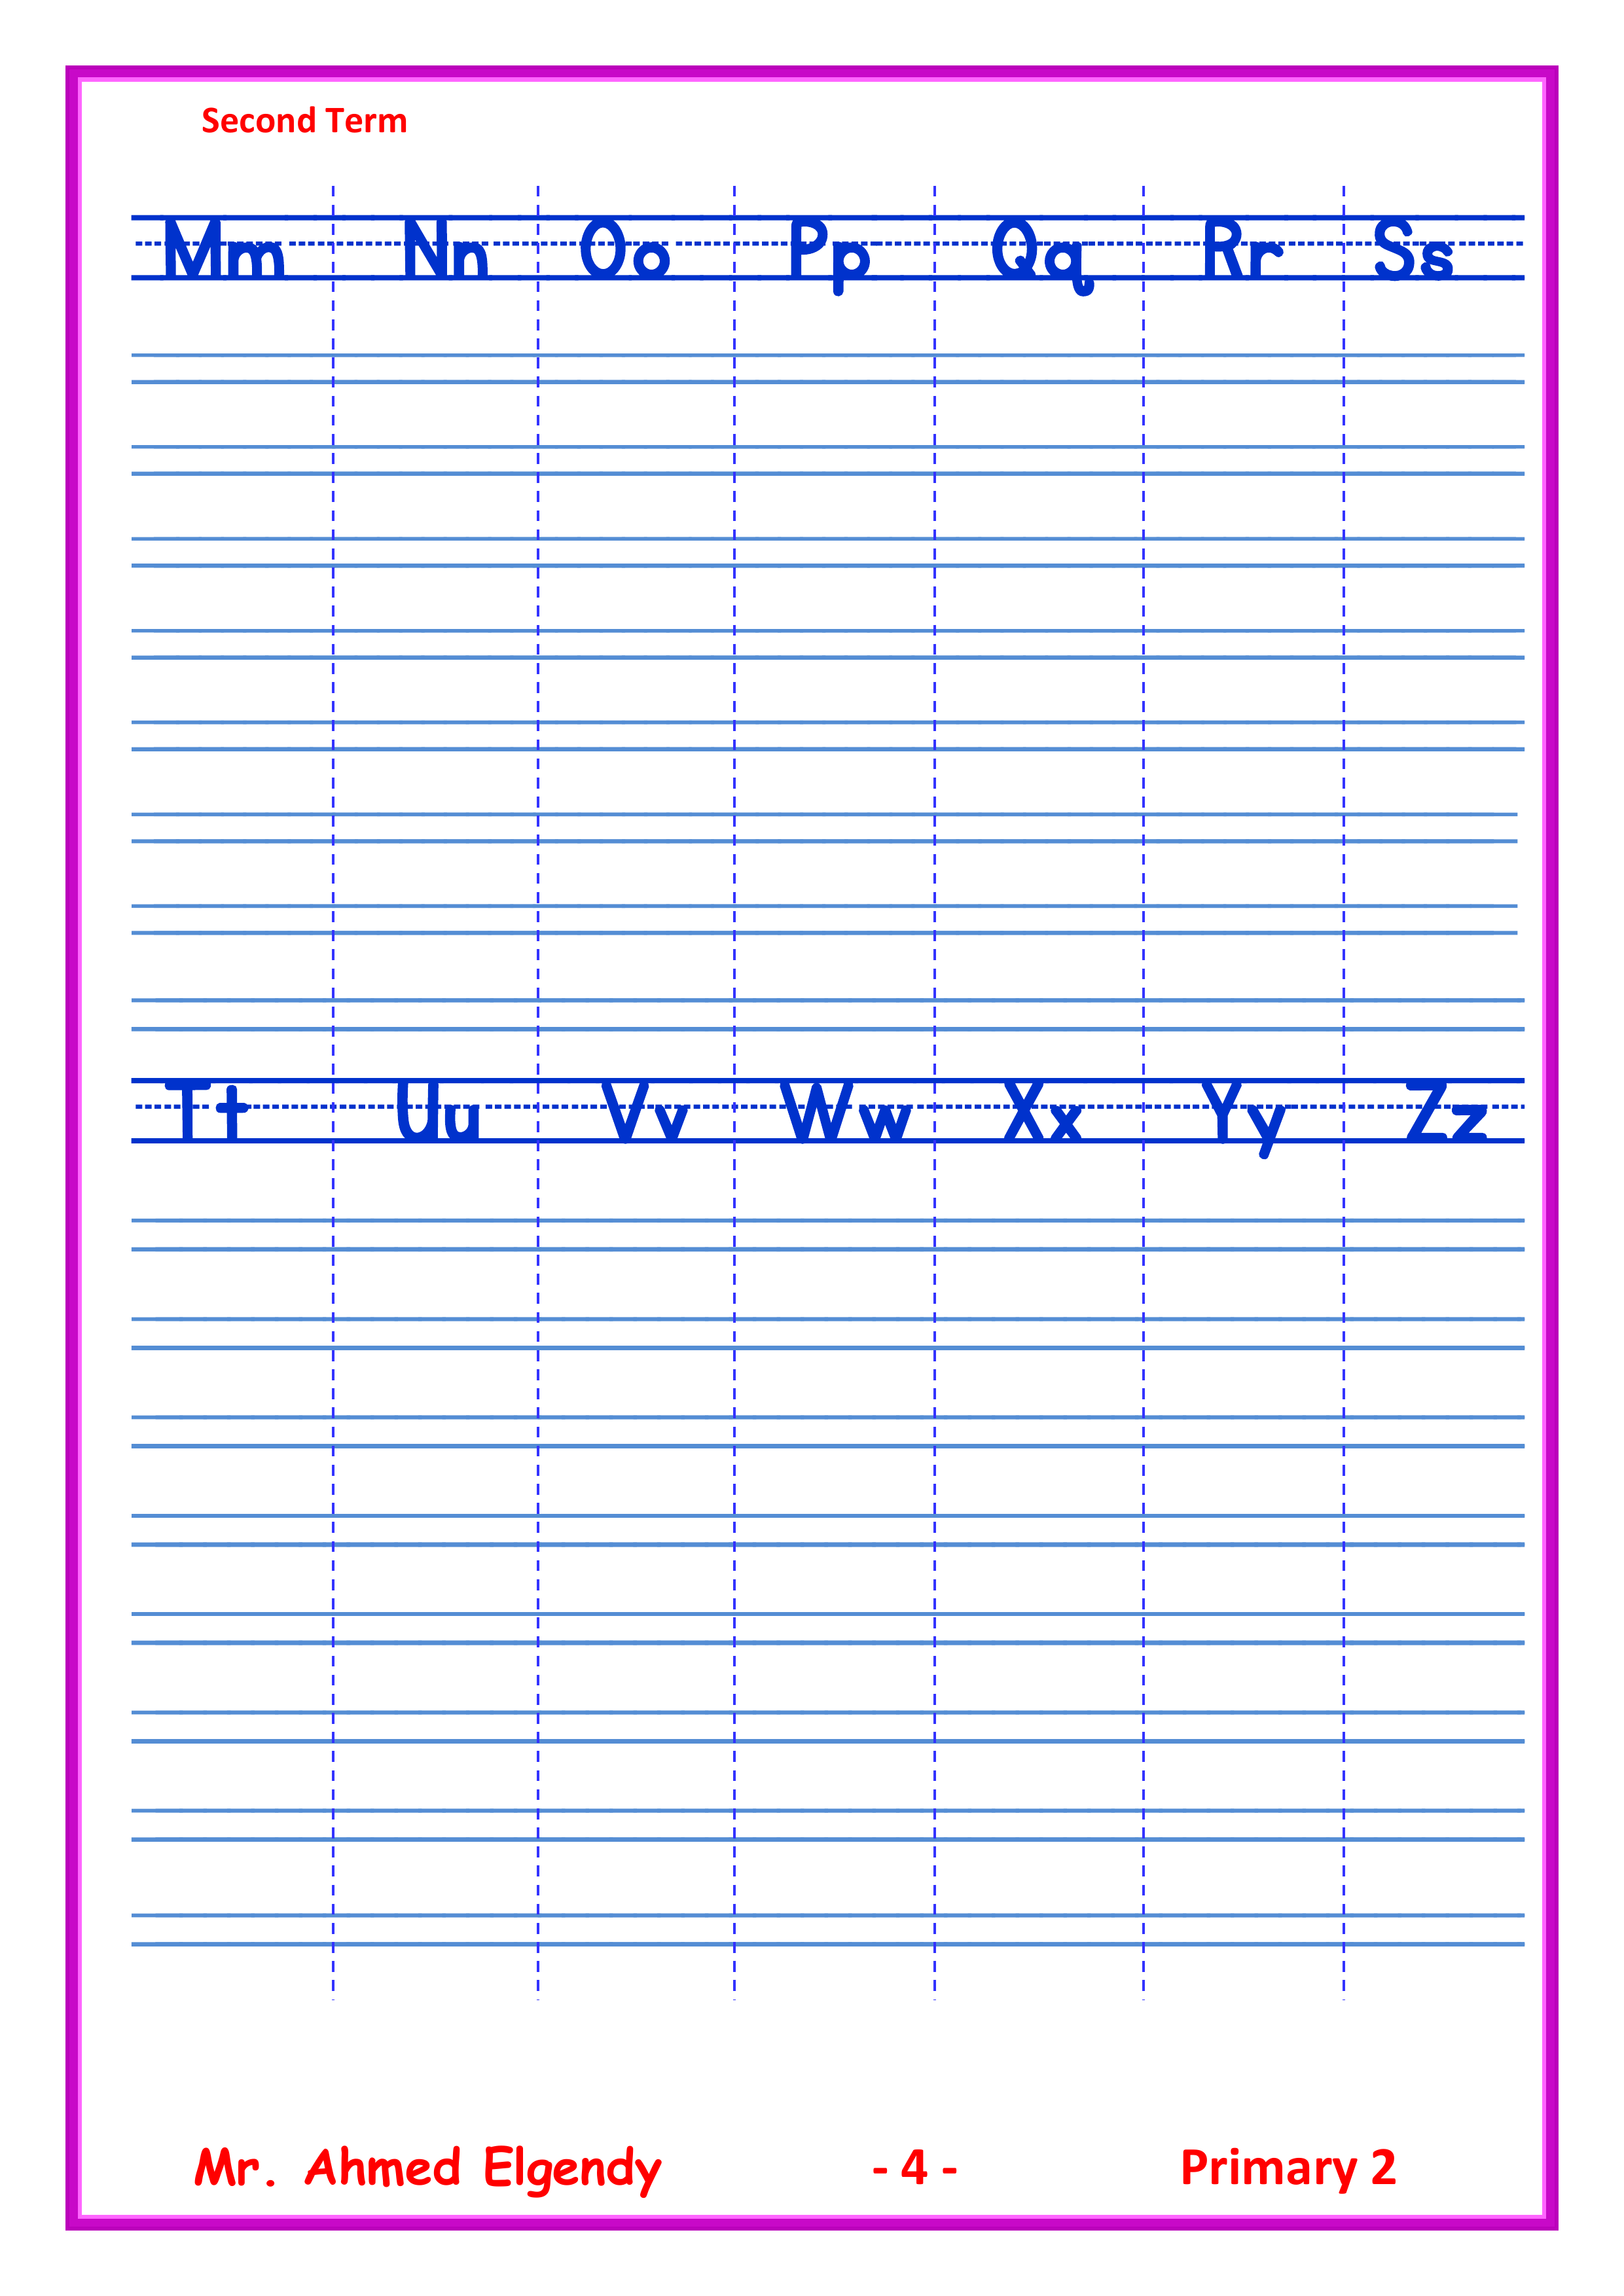 Second Term
Mm Nn Oo Pp Qq Rr Ss
Tt Uu Vv Ww Xx Yy Zz
Mr. Ahmed Elgendy - 4 - Primary 2